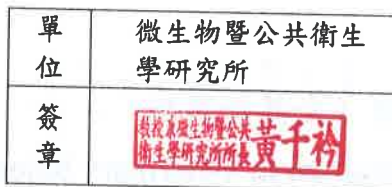 單位
微生物暨公共衛生
學研究所
簽章
教授兼微生物暨公共
衛生學研究所所長
黃千衿